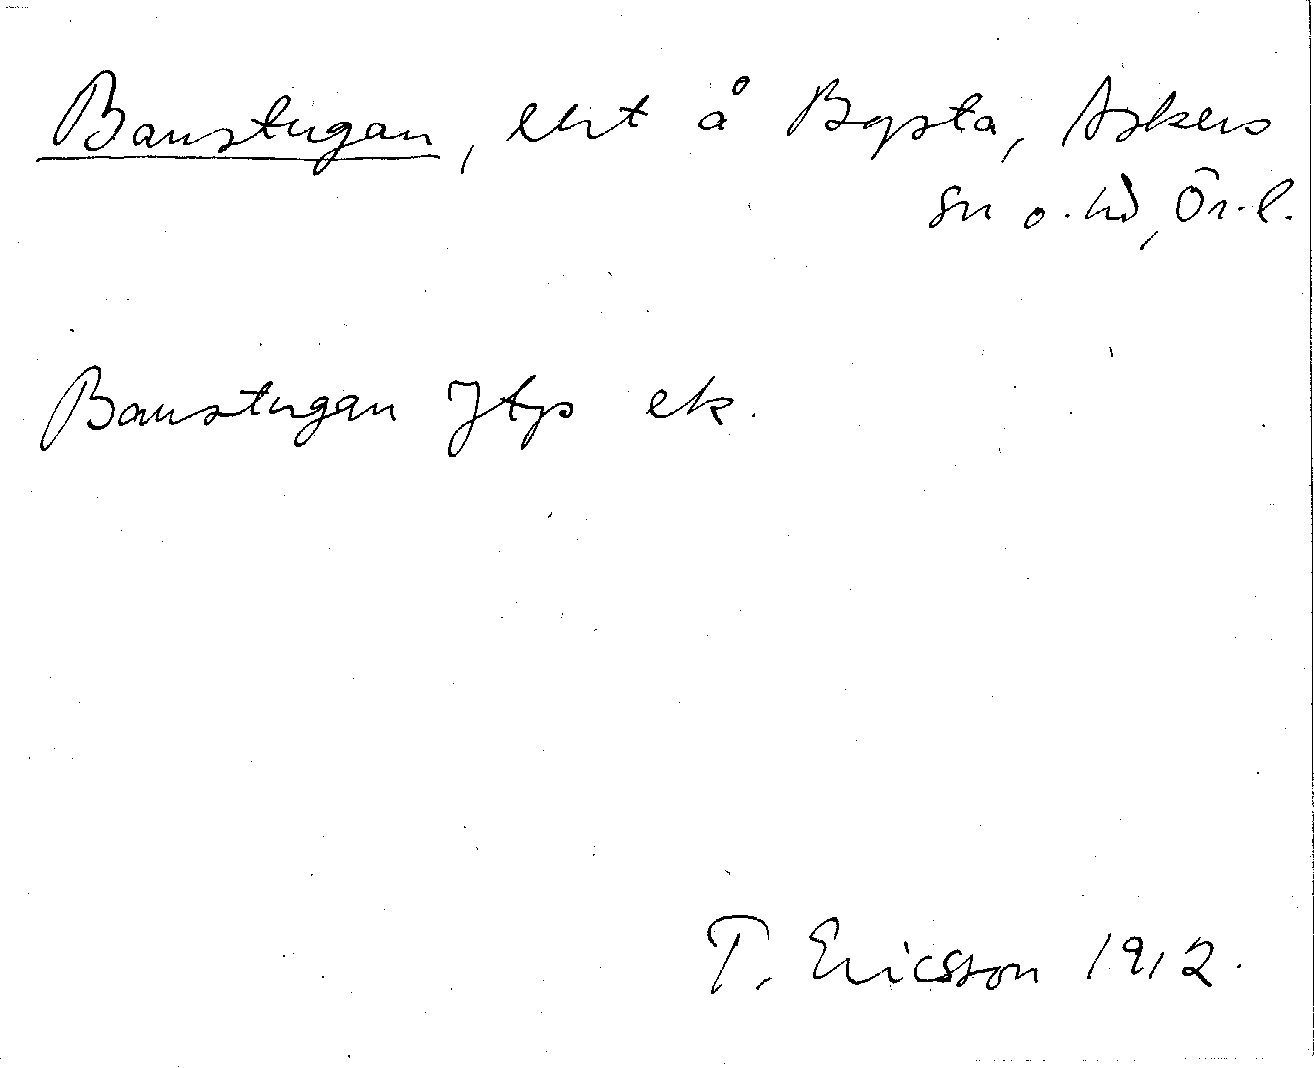 Banstugan, lht å Bysta, Askers
sn o. hd, Ör. l.
Banstugan Jtp ek.
T. Ericsson 1912.